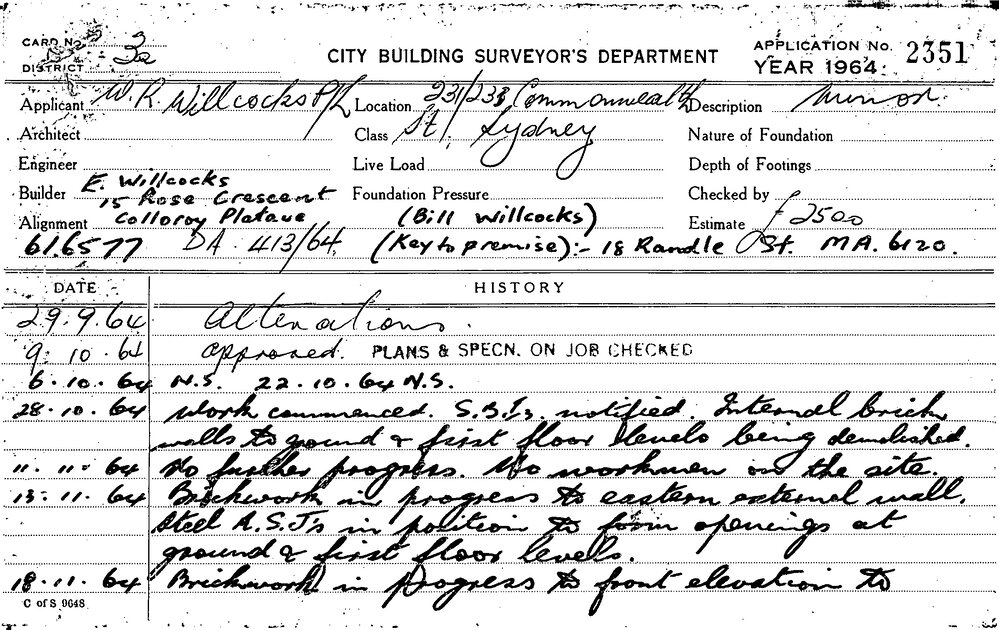 CARD No. 32
DISTRICT
CITY BUILDING SURVEYOR'S DEPARTMENT
APPLICATION No. 2351
YEAR 1964
Applicant W. R. Willcocks P/L Location 231/233 Commonwealth Description Minor
Architect Class St, Sydney Nature of Foundation
Engineer Live Load Depth of Footings
Builder E. Willcocks Foundation Pressure Checked by
15 Rose Crescent
Alignment Colloroy Plataue (Bill Willcocks) Estimate £2500
61.6577 DA 413/64 (Key to premise):- 18 Randle St. MA. 6120.
DATE HISTORY
29.9.64 Alterations.
9.10.64 approved. PLANS & SPECN. ON JOB CHECKED
6.10.64 N.S. 22.10.64 N.S.
28.10.64 Work commenced. notified. Internal brick
walls to ground & first floor levels being demolished.
11.11.64 No further progress. No workmen on the site.
13.11.64 Brickwork in progress to eastern external wall.
Steel R.S.J's in position to form openings at
ground & first floor levels.
18.11.64 Brickwork in progress to front elevation to
C of S 9648